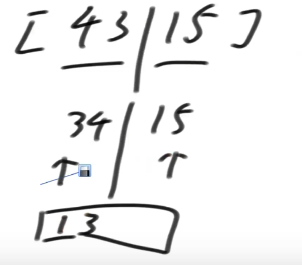 [ 43 | 15 ]
34 | 15
↑ ↑
1 1 3